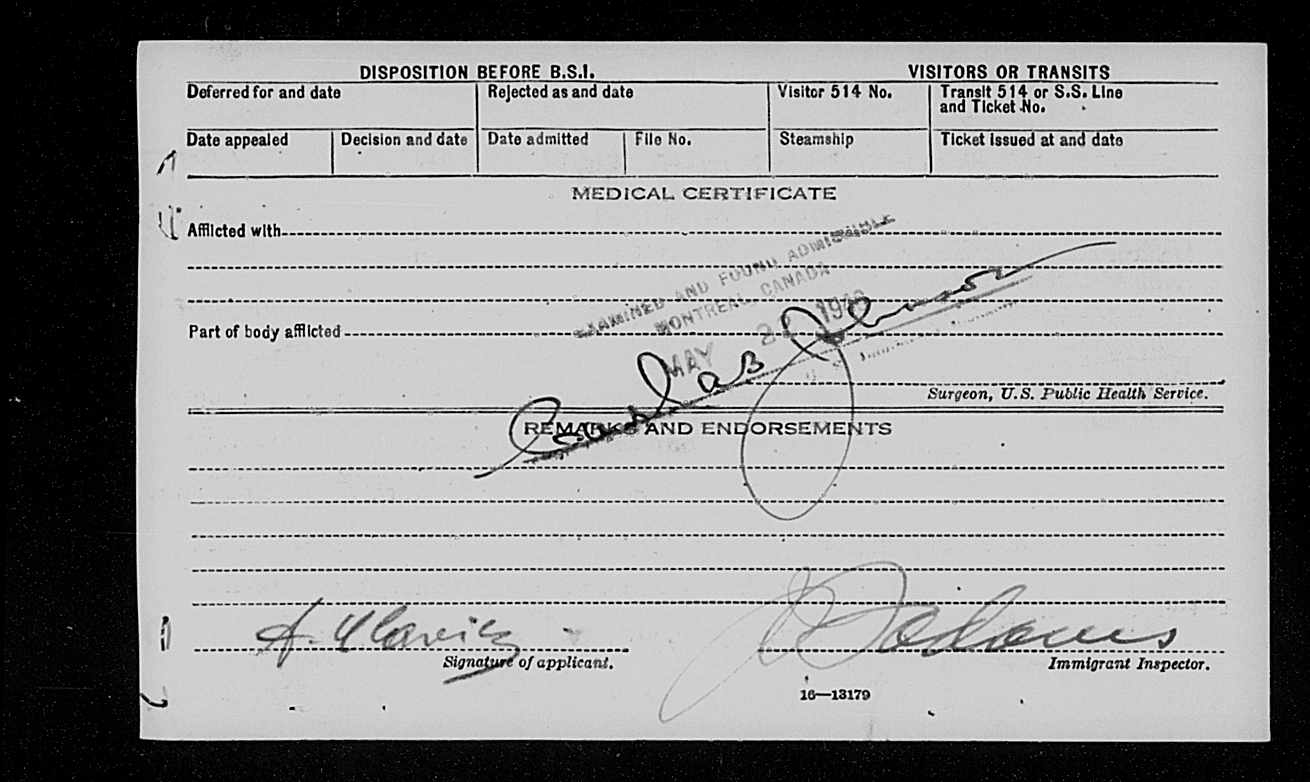 DISPOSITION BEFORE B.S.I.
VISITORS OR TRANSITS
Deferred for and date
Rejected as and date
Visitor 514 No.
Transit 514 or S.S. Line
and Ticket No.
Date appealed
Decision and date
Date admitted
File No.
Steamship
Ticket issued at and date
MEDICAL CERTIFICATE
Afflicted with
EXAMINED AND FOUND ADMISSIBLE
MONTREAL, CANADA
MAY
Part of body afflicted
Surgeon, U.S. Public Health Service.
REMARKS AND ENDORSEMENTS
Signature of applicant.
Immigrant Inspector.
16—13179